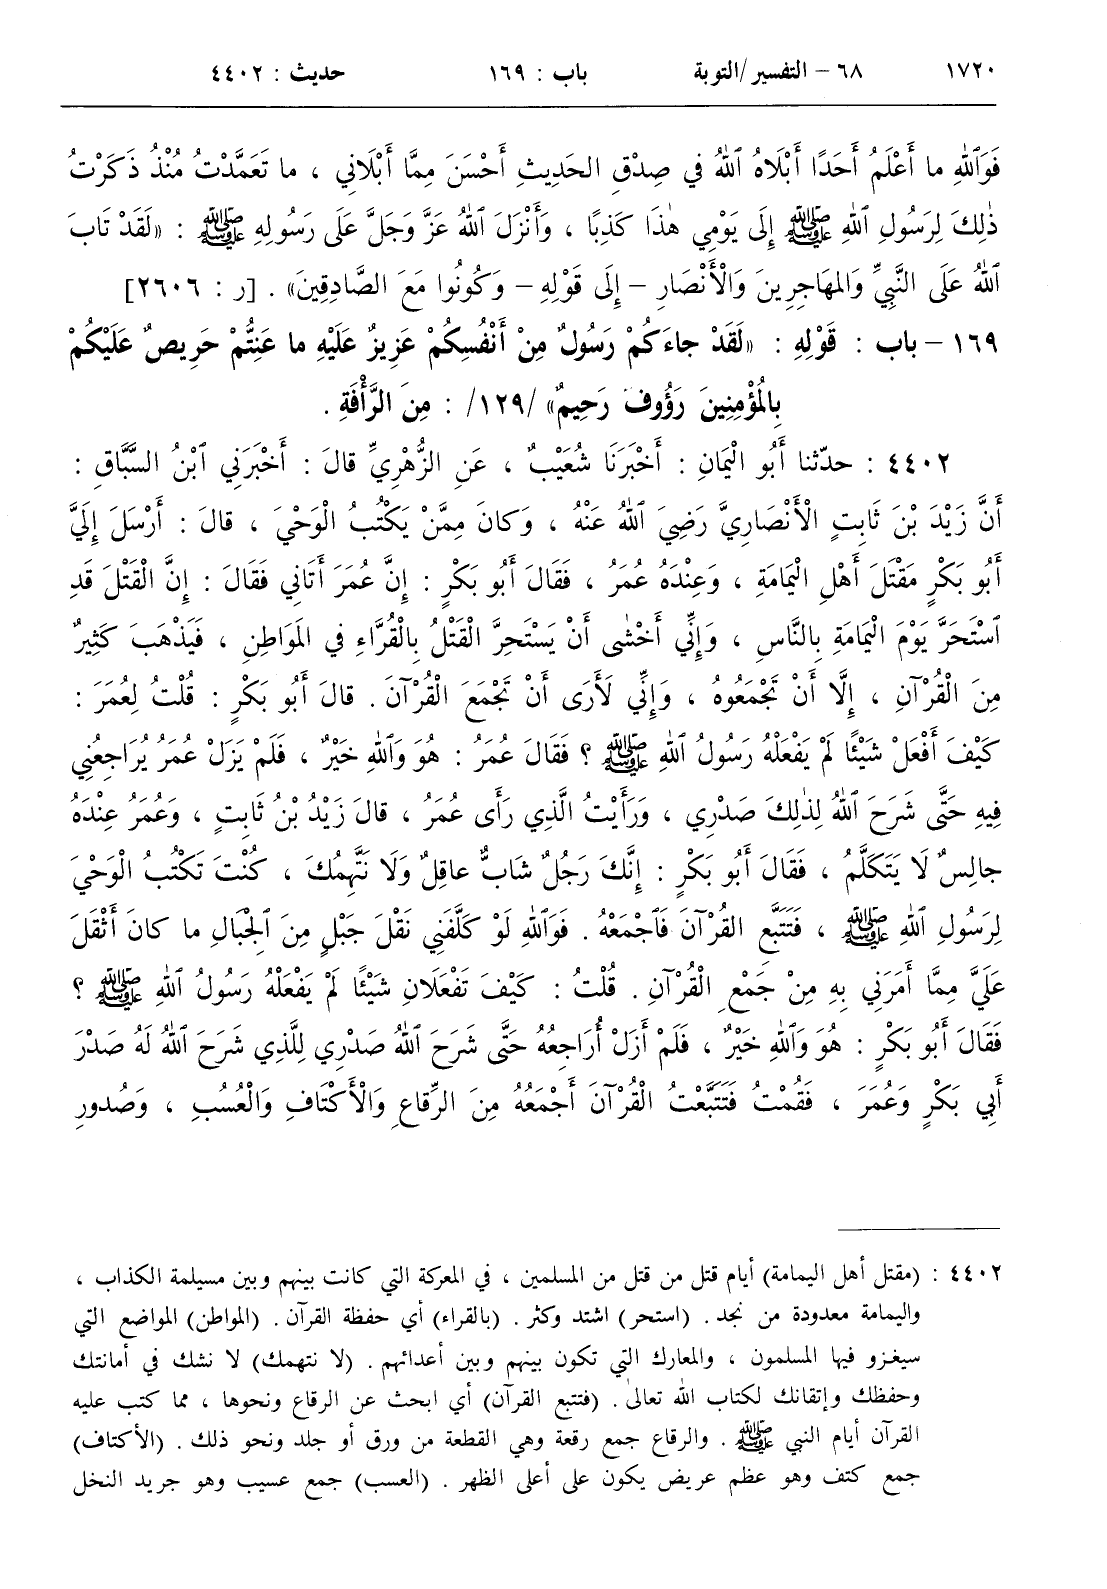 ١٧٢٠ ٦٨ – التفسير/التوبة باب : ١٦٩ حديث : ٤٤٠٢
فَوَٱللهِ ما أَعْلَمُ أَحَدًا أَبْلَاهُ ٱللهُ في صِدْقِ الحَدِيثِ أَحْسَنَ مِمَّا أَبْلَاني ، ما تَعَمَّدْتُ مُنْذُ ذَكَرْتُ
ذٰلِكَ لِرَسُولِ ٱللهِ ﷺ إِلَى يَوْمِي هٰذَا كَذِبًا ، وَأَنْزَلَ ٱللهُ عَزَّ وَجَلَّ عَلَى رَسُولِهِ ﷺ : «لَقَدْ تَابَ
ٱللهُ عَلَى النَّبِيِّ وَالمَهَاجِرِينَ وَالْأَنْصَارِ – إِلَى قَوْلِهِ – وَكُونُوا مَعَ الصَّادِقِينَ» . [ر : ٢٦٠٦]
١٦٩ – باب : قَوْلِهِ : «لَقَدْ جاءَكُمْ رَسُولٌ مِنْ أَنْفُسِكُمْ عَزِيزٌ عَلَيْهِ ما عَنِتُّمْ حَرِيصٌ عَلَيْكُمْ
بِالْمُؤْمِنِينَ رَؤُوفٌ رَحِيمٌ» /١٢٩/ : مِنَ الرَّأْفَةِ .
٤٤٠٢ : حدّثنا أَبُو الْيَمَانِ : أَخْبَرَنَا شُعَيْبٌ ، عَنِ الزُّهْرِيِّ قالَ : أَخْبَرَنِي ٱبْنُ السَّبَّاقِ :
أَنَّ زَيْدَ بْنَ ثَابِتٍ الْأَنْصَارِيَّ رَضِيَ ٱللهُ عَنْهُ ، وَكانَ مِمَّنْ يَكْتُبُ الْوَحْيَ ، قالَ : أَرْسَلَ إِلَيَّ
أَبُو بَكْرٍ مَقْتَلَ أَهْلِ الْيَمَامَةِ ، وَعِنْدَهُ عُمَرُ ، فَقَالَ أَبُو بَكْرٍ : إِنَّ عُمَرَ أَتَانِي فَقَالَ : إِنَّ الْقَتْلَ قَدِ
ٱسْتَحَرَّ يَوْمَ الْيَمَامَةِ بِالنَّاسِ ، وَإِنِّي أَخْشٰى أَنْ يَسْتَحِرَّ الْقَتْلُ بِالْقُرَّاءِ في المَوَاطِنِ ، فَيَذْهَبَ كَثِيرٌ
مِنَ الْقُرْآنِ ، إِلَّا أَنْ تَجْمَعُوهُ ، وَإِنِّي لَأَرَى أَنْ تَجْمَعَ الْقُرْآنَ . قالَ أَبُو بَكْرٍ : قُلْتُ لِعُمَرَ :
كَيْفَ أَفْعَلُ شَيْئًا لَمْ يَفْعَلْهُ رَسُولُ ٱللهِ ﷺ ؟ فَقَالَ عُمَرُ : هُوَ وَٱللهِ خَيْرٌ ، فَلَمْ يَزَلْ عُمَرُ يُرَاجِعُنِي
فِيهِ حَتَّى شَرَحَ ٱللهُ لِذٰلِكَ صَدْرِي ، وَرَأَيْتُ الَّذِي رَأَى عُمَرُ ، قالَ زَيْدُ بْنُ ثَابِتٍ ، وَعُمَرُ عِنْدَهُ
جالِسٌ لَا يَتَكَلَّمُ ، فَقَالَ أَبُو بَكْرٍ : إِنَّكَ رَجُلٌ شَابٌّ عاقِلٌ وَلَا نَتَّهِمُكَ ، كُنْتَ تَكْتُبُ الْوَحْيَ
لِرَسُولِ ٱللهِ ﷺ ، فَتَتَبَّعِ الْقُرْآنَ فَٱجْمَعْهُ . فَوَٱللهِ لَوْ كَلَّفَنِي نَقْلَ جَبْلٍ مِنَ الْجِبَالِ ما كانَ أَثْقَلَ
عَلَيَّ مِمَّا أَمَرَنِي بِهِ مِنْ جَمْعِ الْقُرْآنِ . قُلْتُ : كَيْفَ تَفْعَلَانِ شَيْئًا لَمْ يَفْعَلْهُ رَسُولُ ٱللهِ ﷺ ؟
فَقَالَ أَبُو بَكْرٍ : هُوَ وَٱللهِ خَيْرٌ ، فَلَمْ أَزَلْ أُرَاجِعُهُ حَتَّى شَرَحَ ٱللهُ صَدْرِي لِلَّذِي شَرَحَ ٱللهُ لَهُ صَدْرَ
أَبِي بَكْرٍ وَعُمَرَ ، فَقُمْتُ فَتَتَبَّعْتُ الْقُرْآنَ أَجْمَعُهُ مِنَ الرِّقَاعِ وَالْأَكْتَافِ وَالْعُسُبِ ، وَصُدُورِ
٤٤٠٢ : (مقتل أهل اليمامة) أيام قتل من قتل من المسلمين ، في المعركة التي كانت بينهم وبين مسيلمة الكذاب ،
واليمامة معدودة من نجد . (استحر) اشتد وكثر . (بالقراء) أي حفظة القرآن . (المواطن) المواضع التي
سيغزو فيها المسلمون ، والمعارك التي تكون بينهم وبين أعدائهم . (لا نتهمك) لا نشك في أمانتك
وحفظك وإتقانك لكتاب الله تعالى . (فتتبع القرآن) أي ابحث عن الرقاع ونحوها ، مما كتب عليه
القرآن أيام النبي ﷺ . والرقاع جمع رقعة وهي القطعة من ورق أو جلد ونحو ذلك . (الأكتاف)
جمع كتف وهو عظم عريض يكون على أعلى الظهر . (العسب) جمع عسيب وهو جريد النخل